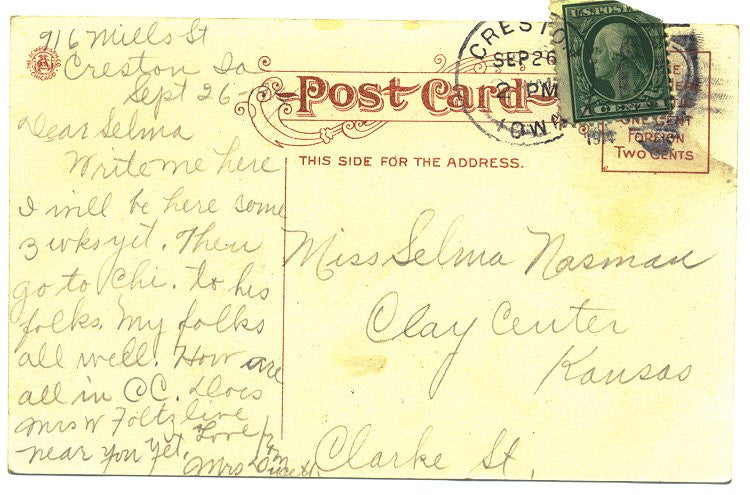 916 Mills St
Creston Ia
Sept 26-
Dear Selma
Write me here
I will be here some
3 wks yet. Then
go to Chi. to his
folks. My folks
all well. How are
all in CC. Does
Mrs W Foltz live
near you yet. Love from
Mrs
Post Card
THIS SIDE FOR THE ADDRESS.
CRESTON
SEP 26
2 PM
IOWA
U.S. POST
1 CENT 1
ONE CENT
FOREIGN
TWO CENTS
Miss Selma Nasman
Clay Center
Kansas
Clarke St,